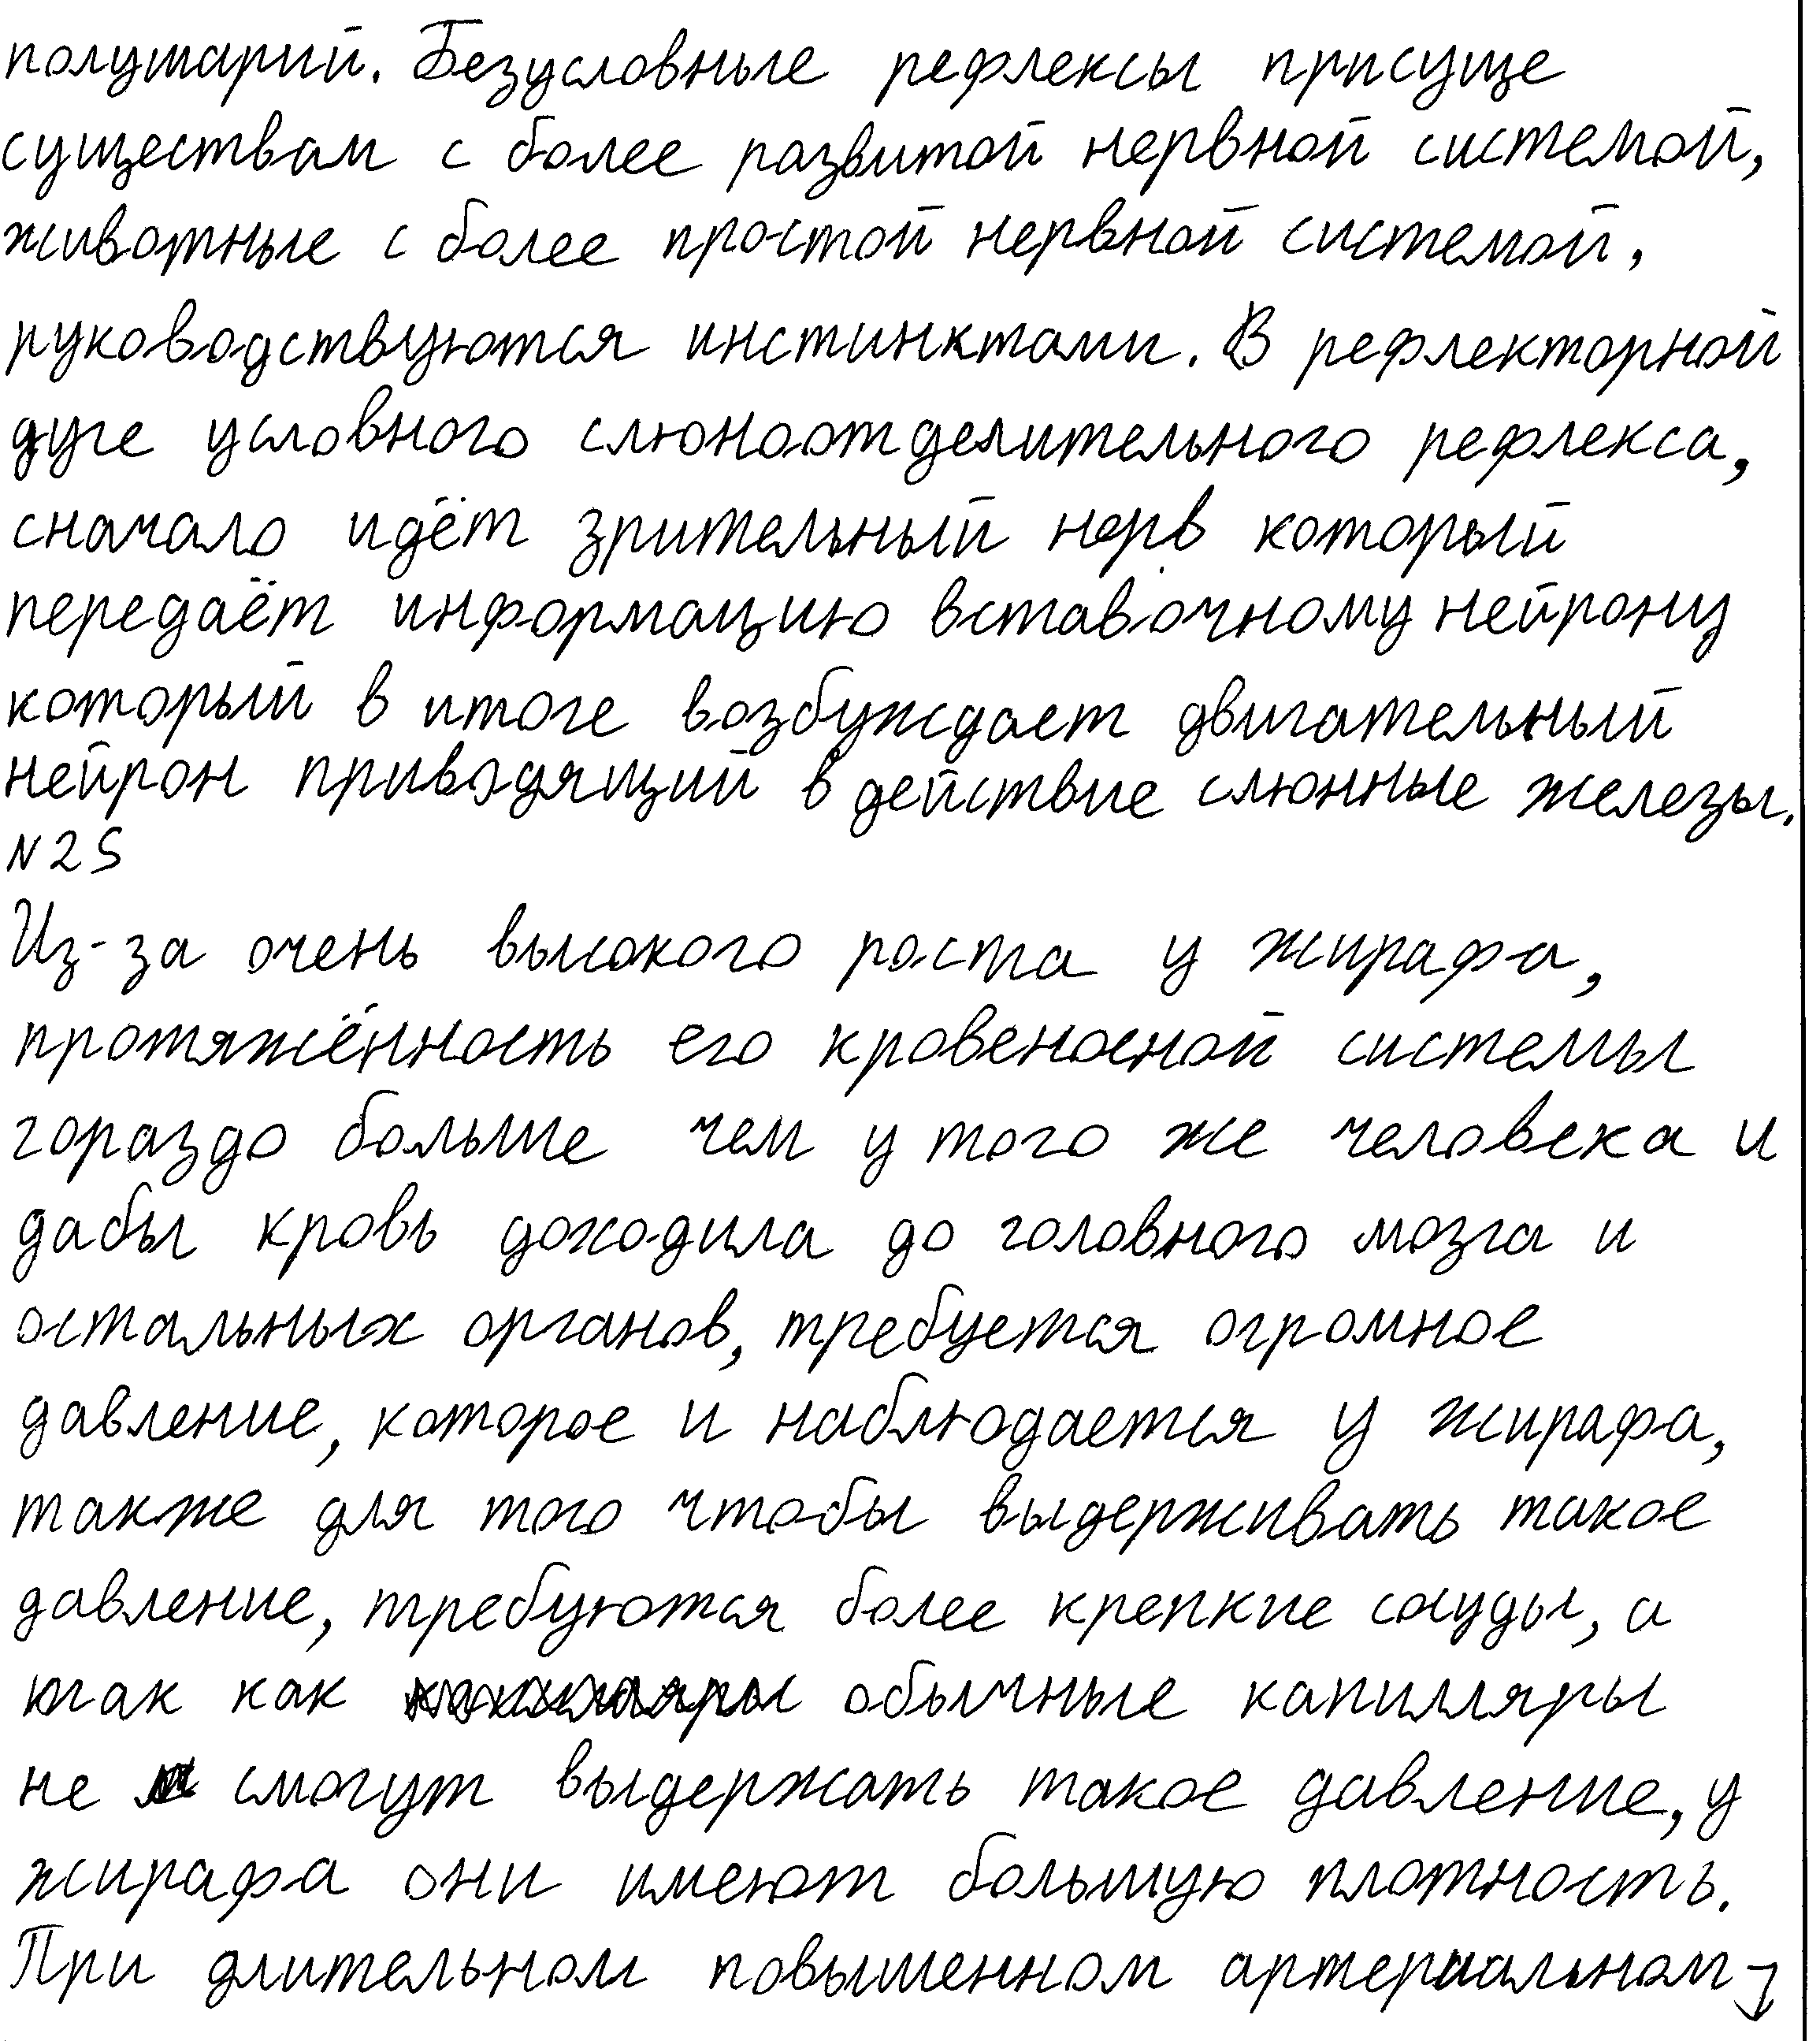 полушарий. Безусловные рефлексы присуще
существам с более развитой нервной системой,
животные с более простой нервной системой,
руководствуются инстинктами. В рефлекторной
дуге условного слюноотделительного рефлекса,
сначало идёт зрительный нерв который
передаёт информацию вставочному нейрону
который в итоге возбуждает двигательный
нейрон приводящий в действие слюнные железы.
N25
Из-за очень высокого роста у жирафа,
протяжённость его кровеносной системы
гораздо больше чем у того же человека и
дабы кровь доходила до головного мозга и
остальных органов, требуется огромное
давление, которое и наблюдается у жирафа,
также для того чтобы выдерживать такое
давление, требуются более крепкие сосуды, а
так как обычные капилляры
не смогут выдержать такое давление, у
жирафа они имеют большую плотность.
При длительном повышенном артериальном